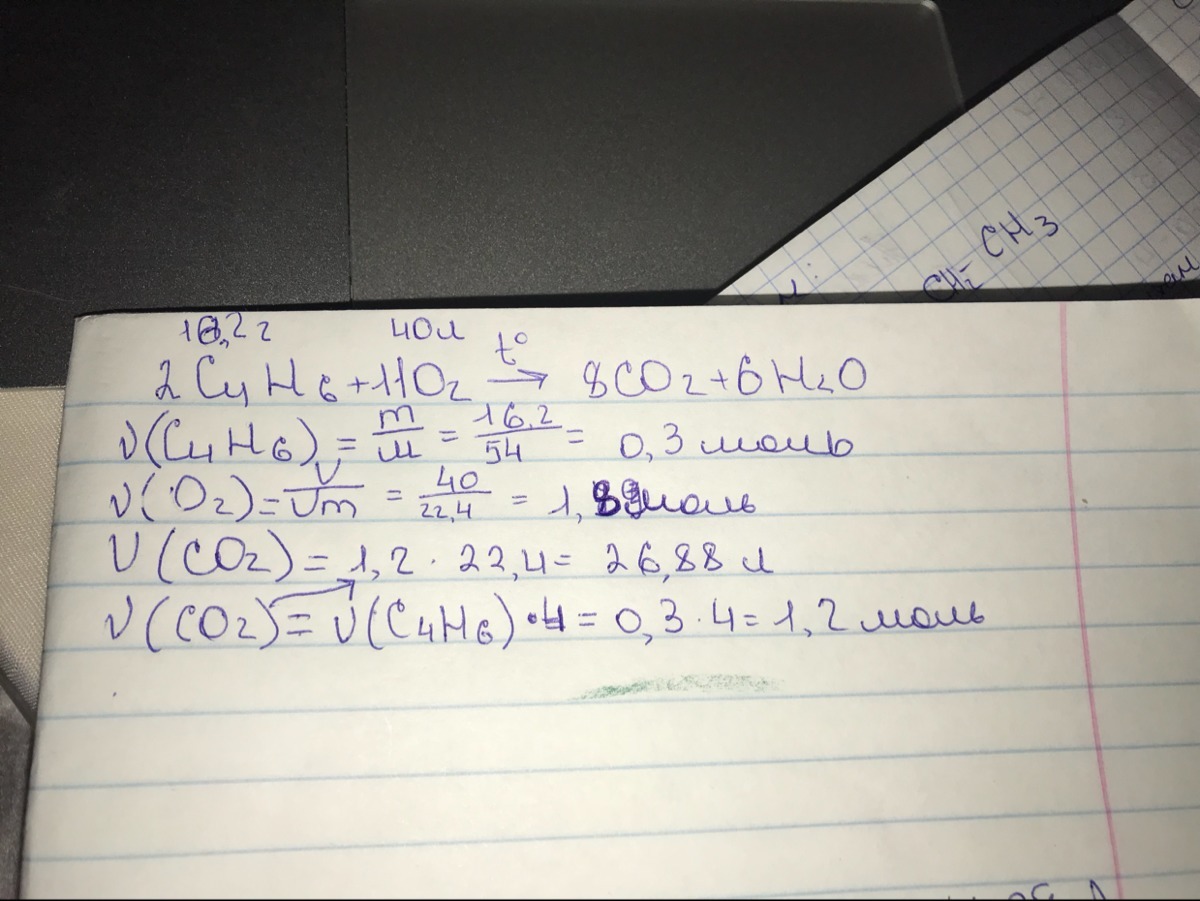 CH₂ CH3
16,2г 40л
2C4H6+11O2 t° → 8CO2+6H2O
ν(C4H6) = m/M = 16,2/54 = 0,3 моль
ν(O2)= V/Vm = 40/22,4 = 1, моль
V(CO2) = 1,2 · 22,4 = 26,88 л
ν(CO2) = ν(C4H6) · 4 = 0,3 · 4 = 1,2 моль